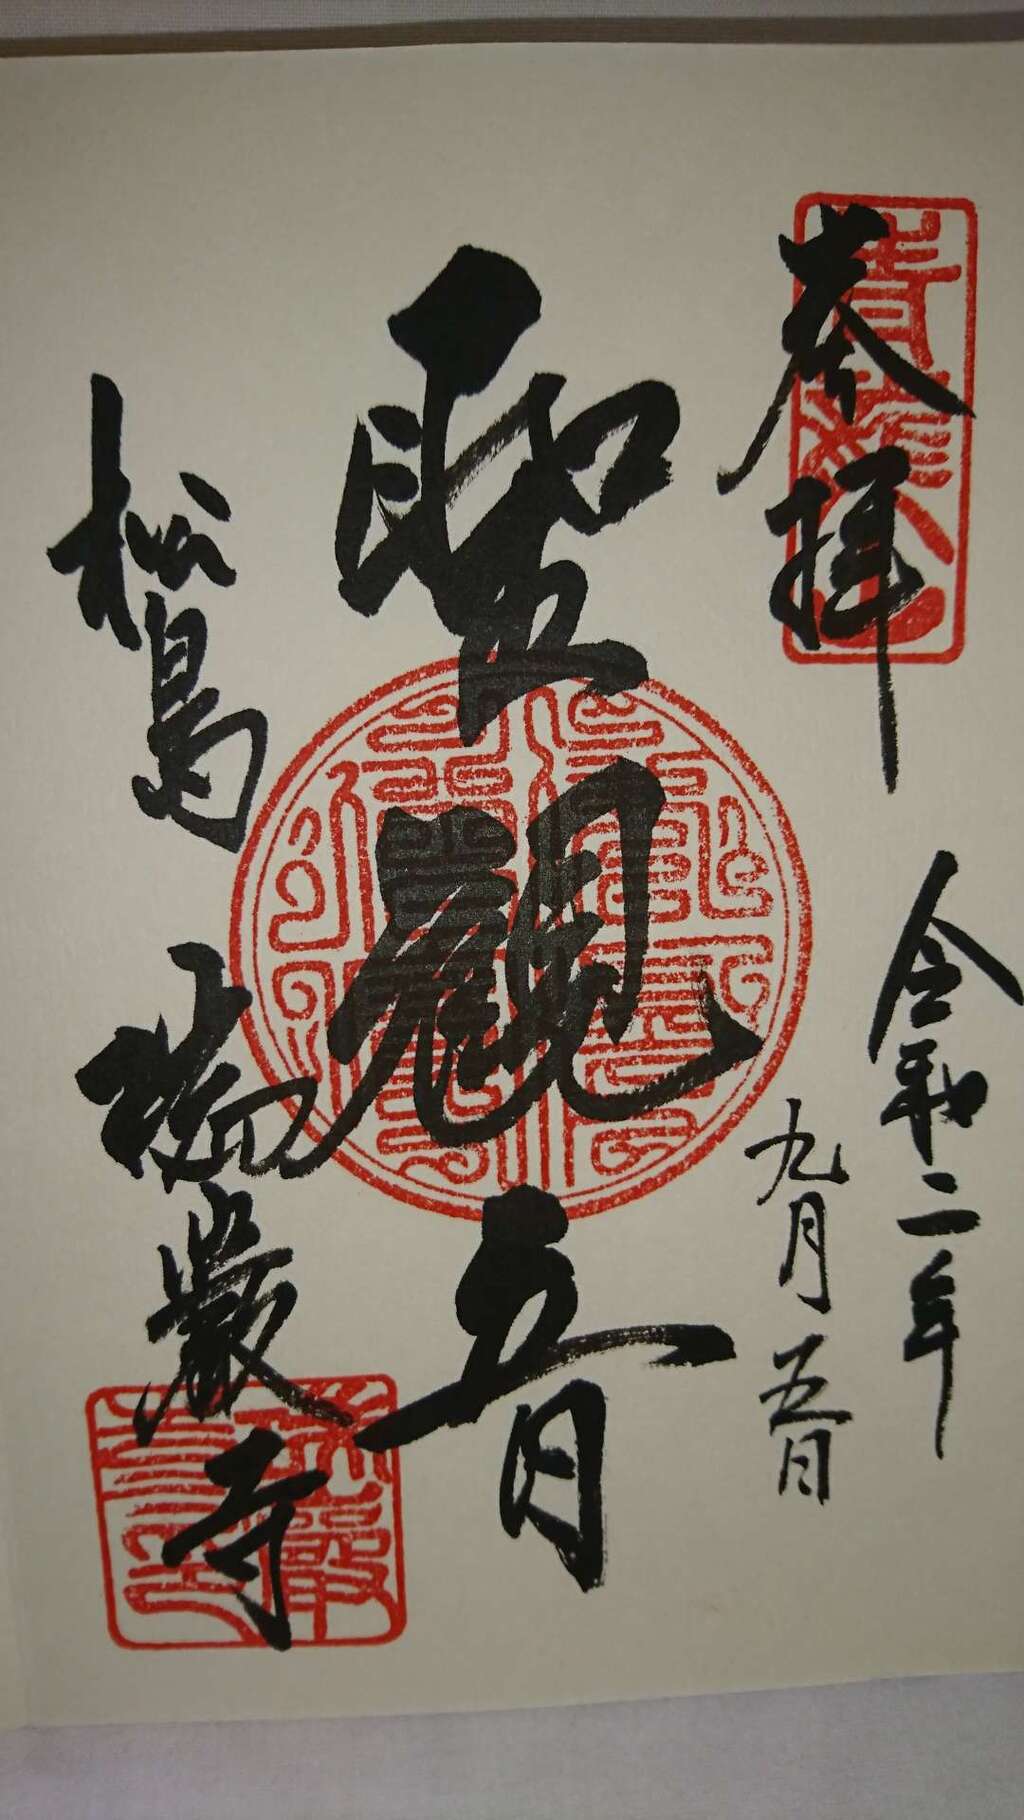 奉拝
令和二年
九月五日
聖観音
松島
瑞巌寺
青龍山